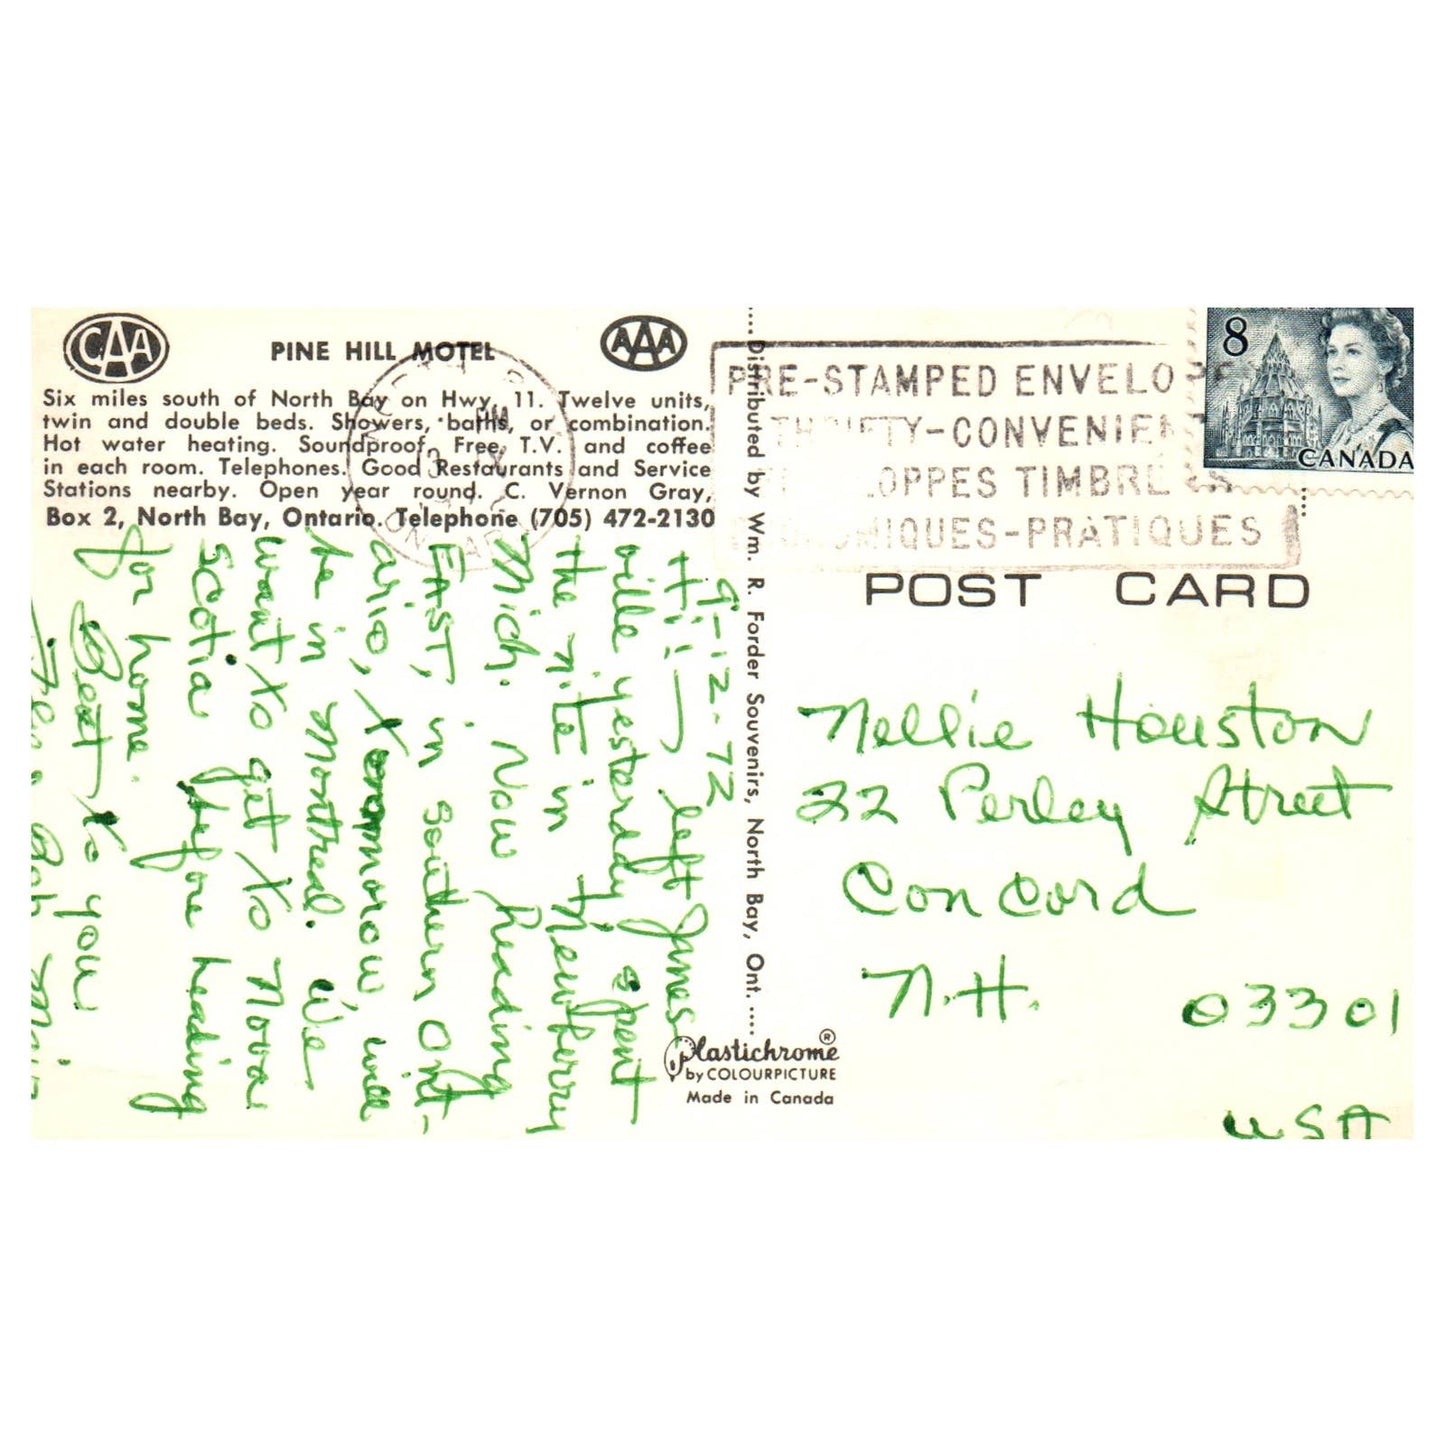 CAA
PINE HILL MOTEL
AAA
Six miles south of North Bay on Hwy. 11. Twelve units,
twin and double beds. Showers, baths, or combination.
Hot water heating. Soundproof. Free T.V. and coffee
in each room. Telephones. Good Restaurants and Service
Stations nearby. Open year round. C. Vernon Gray,
Box 2, North Bay, Ontario. Telephone (705) 472-2130
9-12-72
Hi! left James-
ville yesterday, spent
the nite in Newberry
Mich. Now heading
EAST, in Southern Ont-
ario, Xomorow will
be in Montreal. We
want Xo get Xo Nova
Scotia before heading
for home.
Best Xo you
Distributed by Wm. R. Forder Souvenirs, North Bay, Ont.
Plastichrome®
by COLOURPICTURE
Made in Canada
PRE-STAMPED ENVELOPE
THRIFTY-CONVENIENT
OPPES TIMBRE
OMIQUES-PRATIQUES
8
CANADA
POST CARD
Nellie Houston
22 Perley Street
Concord
N.H. 03301
USA